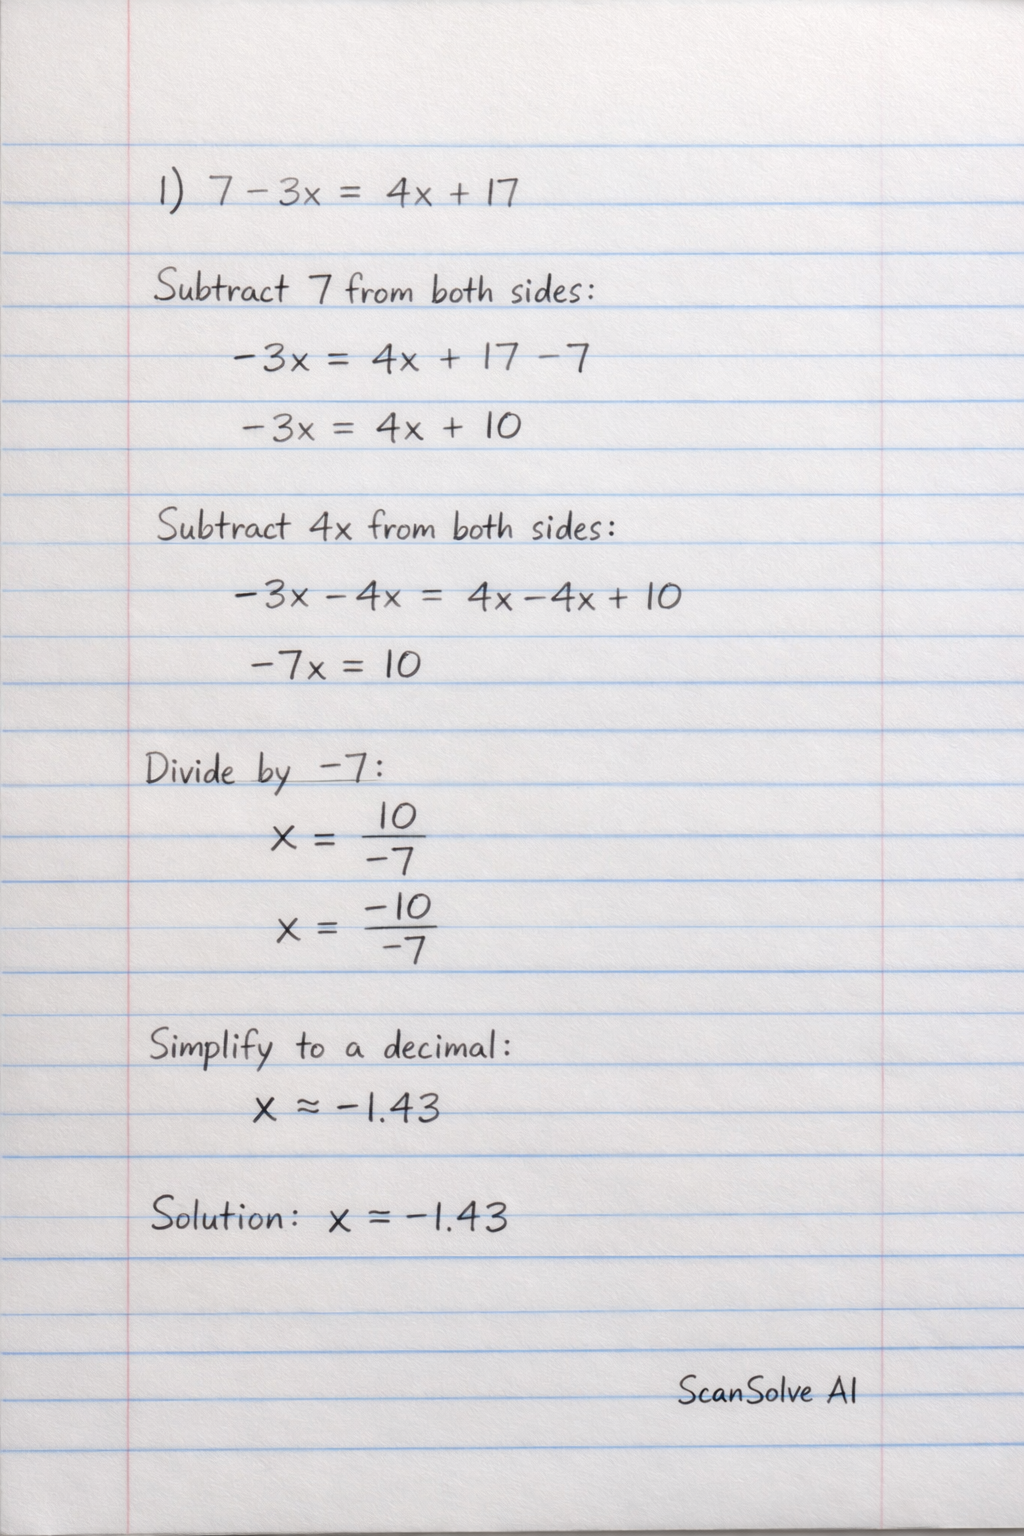 1) 7 - 3x = 4x + 17
Subtract 7 from both sides:
-3x = 4x + 17 - 7
-3x = 4x + 10
Subtract 4x from both sides:
-3x - 4x = 4x - 4x + 10
-7x = 10
Divide by -7:
x = 10/-7
x = -10/-7
Simplify to a decimal:
x ≈ -1.43
Solution: x = -1.43
ScanSolve AI